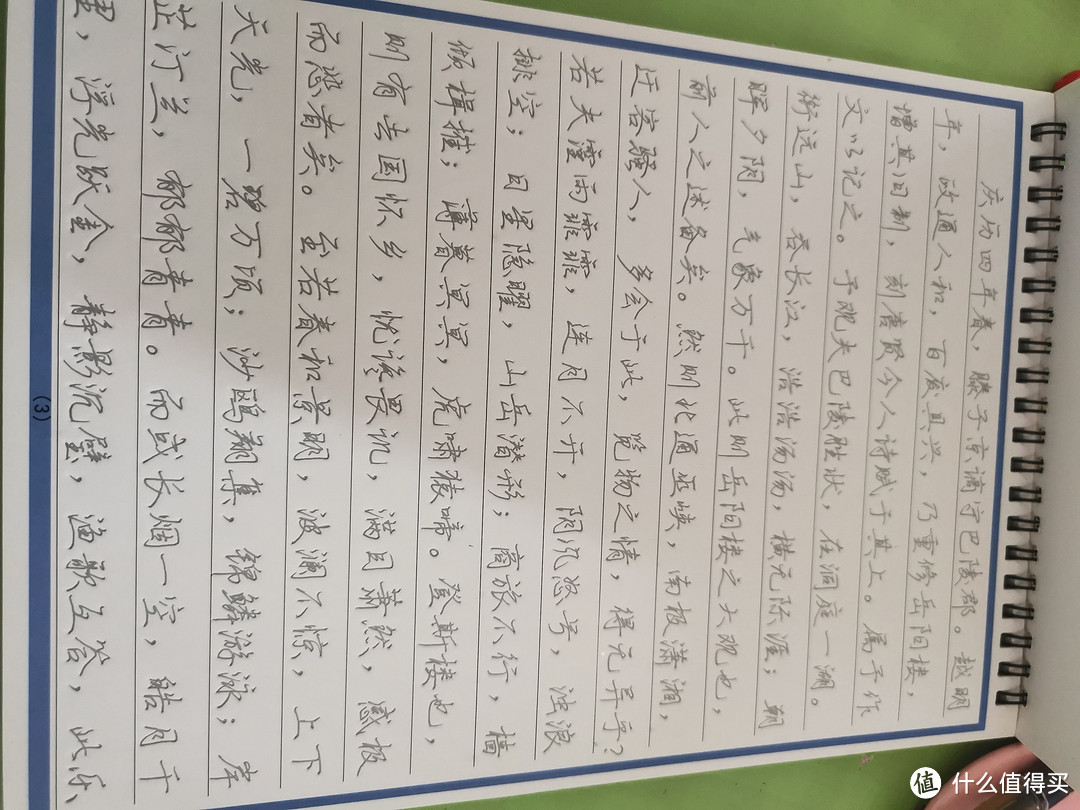 庆历四年春，滕子京谪守巴陵郡。越明
年，政通人和，百废具兴，乃重修岳阳楼，
增其旧制，刻唐贤今人诗赋于其上。属予作
文以记之。予观夫巴陵胜状，在洞庭一湖。
衔远山，吞长江，浩浩汤汤，横无际涯；朝
晖夕阴，气象万千。此则岳阳楼之大观也，
前人之述备矣。然则北通巫峡，南极潇湘，
迁客骚人，多会于此，览物之情，得无异乎？
若夫霪雨霏霏，连月不开，阴风怒号，浊浪
排空；日星隐曜，山岳潜形；商旅不行，樯
倾楫摧；薄暮冥冥，虎啸猿啼。登斯楼也，
则有去国怀乡，忧谗畏讥，满目萧然，感极
而悲者矣。至若春和景明，波澜不惊，上下
天光，一碧万顷；沙鸥翔集，锦鳞游泳；岸
芷汀兰，郁郁青青。而或长烟一空，皓月千
里，浮光跃金，静影沉璧，渔歌互答，此乐
(3)
值 什么值得买